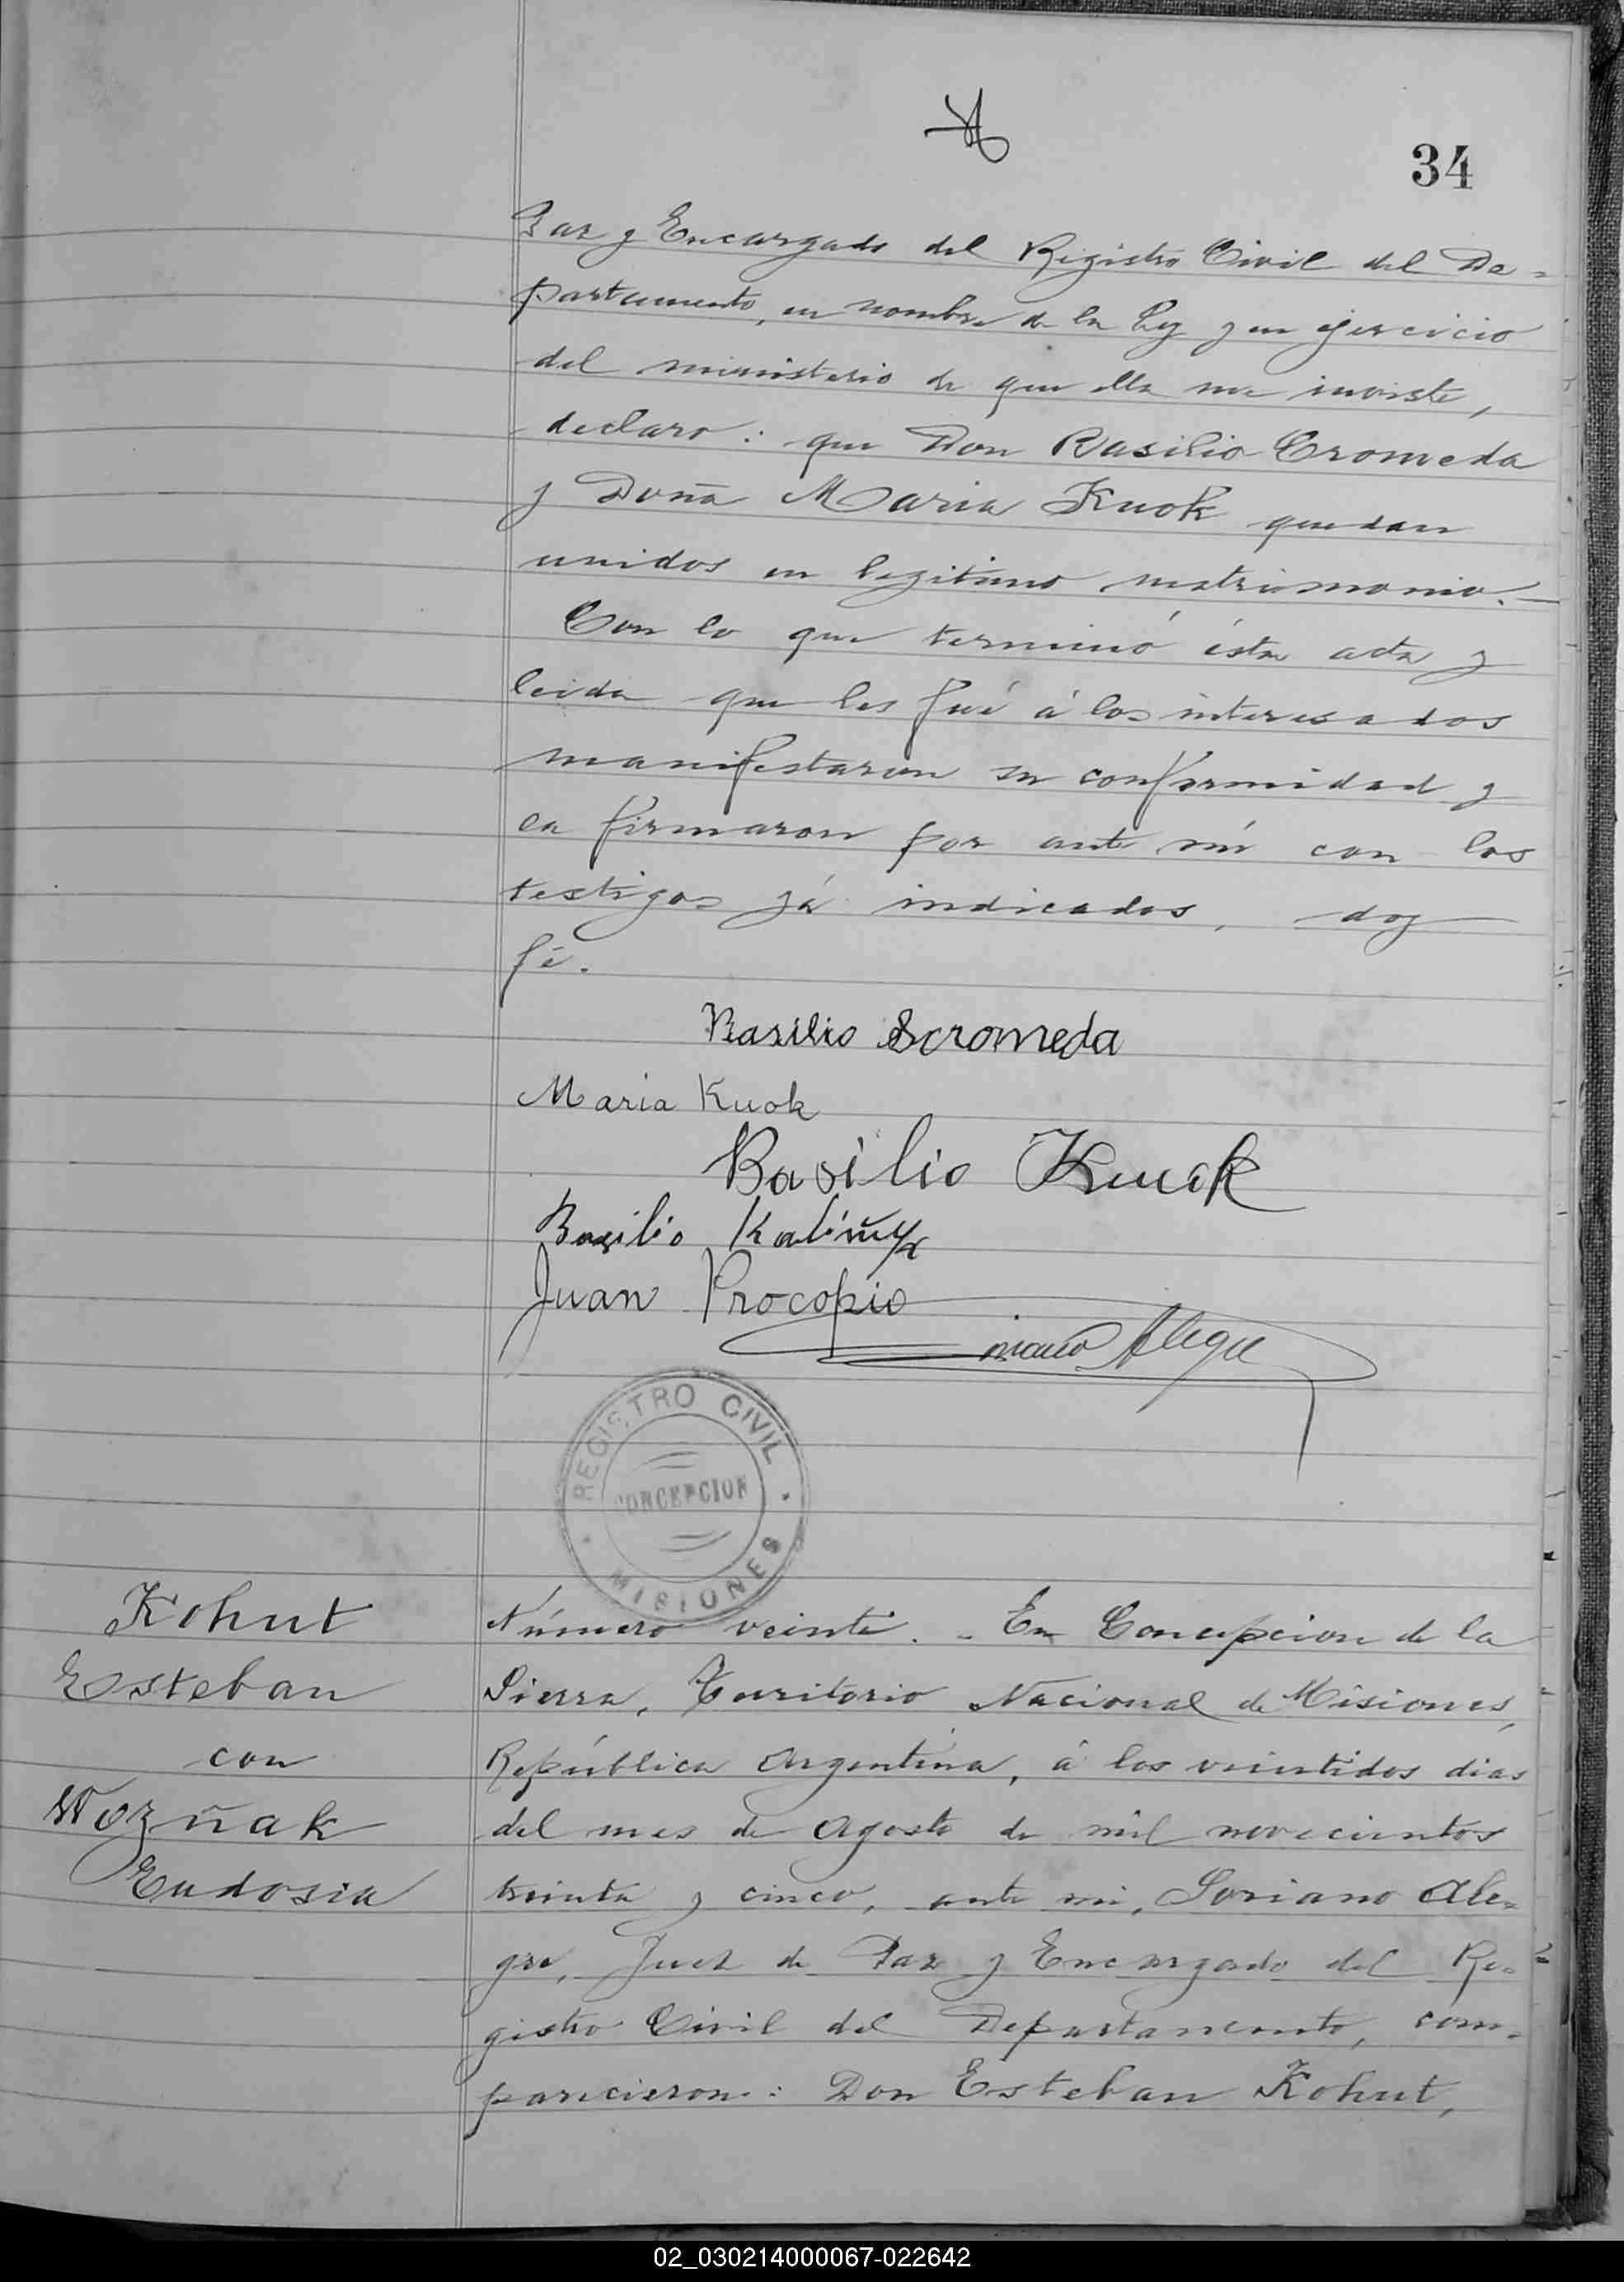 34
Paz y Encargado del Registro Civil del De=
partamento, en nombre de la ley y en ejercicio
del ministerio de que ella me inviste,
declaro: que Don Basilio Cromeda
y Doña Maria Kuok quedan
unidos en legitimo matrimonio.—
Con lo que terminó ésta acta y
leida que les fué á los interesados
manifestaron su conformidad y
la firmaron por ante mí con los
testigos yá indicados, doy
fé.
Basilio Scromeda
Maria Kuok
Basilio Kuok
Basilio
Juan Procopio
Alegre
REGISTRO CIVIL
CONCEPCION
MISIONES
Kohut
Esteban
con
Wozñak
Eudosia
Número veinte. - En Concepcion de la
Sierra, Territorio Nacional de Misiones,
República Argentina, á los veintidos dias
del mes de Agosto de mil novecientos
treinta y cinco, ante mi, Soriano Ale=
gre, Juez de Paz y Encargado del Re=
gistro Civil del Departamento, com=
parecieron: Don Esteban Kohut,
02_030214000067-022642